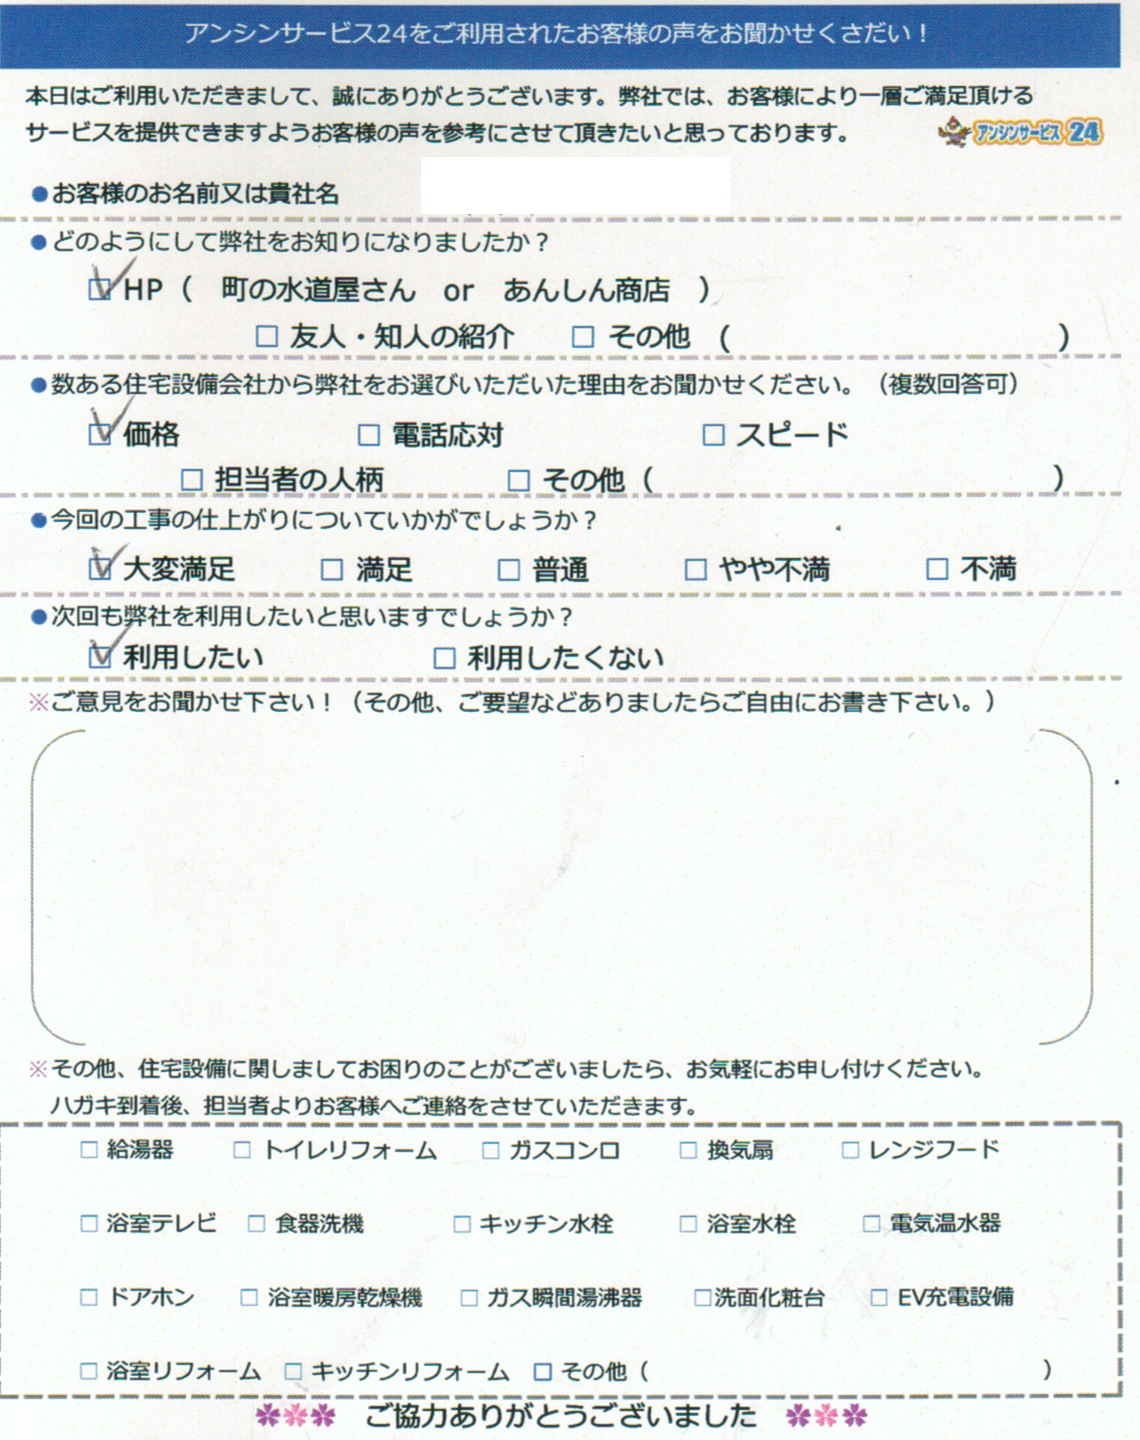 アンシンサービス24をご利用されたお客様の声をお聞かせくさだい！
本日はご利用いただきまして、誠にありがとうございます。弊社では、お客様により一層ご満足頂ける
サービスを提供できますようお客様の声を参考にさせて頂きたいと思っております。
アンシンサービス24
●お客様のお名前又は貴社名
●どのようにして弊社をお知りになりましたか？
☑HP（　町の水道屋さん　or　あんしん商店　）
□ 友人・知人の紹介　□ その他　(　)
●数ある住宅設備会社から弊社をお選びいただいた理由をお聞かせください。（複数回答可）
☑価格　□ 電話応対　□ スピード
□ 担当者の人柄　□ その他（　）
●今回の工事の仕上がりについていかがでしょうか？
☑大変満足　□ 満足　□ 普通　□ やや不満　□ 不満
●次回も弊社を利用したいと思いますでしょうか？
☑利用したい　□ 利用したくない
※ご意見をお聞かせ下さい！（その他、ご要望などありましたらご自由にお書き下さい。）
※その他、住宅設備に関しましてお困りのことがございましたら、お気軽にお申し付けください。
ハガキ到着後、担当者よりお客様へご連絡をさせていただきます。
□ 給湯器　□ トイレリフォーム　□ ガスコンロ　□ 換気扇　□ レンジフード
□ 浴室テレビ　□ 食器洗機　□ キッチン水栓　□ 浴室水栓　□ 電気温水器
□ ドアホン　□ 浴室暖房乾燥機　□ ガス瞬間湯沸器　□洗面化粧台　□ EV充電設備
□ 浴室リフォーム　□ キッチンリフォーム　□ その他（　）
ご協力ありがとうございました